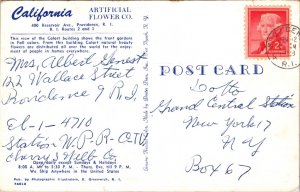 California
ARTIFICIAL
FLOWER CO.
400 Reservoir Ave., Providence, R. I.
Routes 2 and 3
This view of the Colart building shows the front gardens
in Fall colors. From this building Colart natural beauty
flowers are distributed all over the world for the enjoy-
ment of people in every walk of life.
Mrs. Albert Genest
122 Wallace Street
Providence 9 R.I.
EL-1-4710
Station W-P-R-O-TV
Cherry & Webb Co.
Open daily except Sundays & Holidays
8:05 A. M. to 5:30 P. M. Thurs. Eve. till 9 P. M.
We Ship Anywhere in the United States
Pub. by Photographic Illustrators, E. Greenwich, R. I.
POST CARD
Lotto
Grand Central Station
New York 17
N Y
Box 67
R.I.
2¢